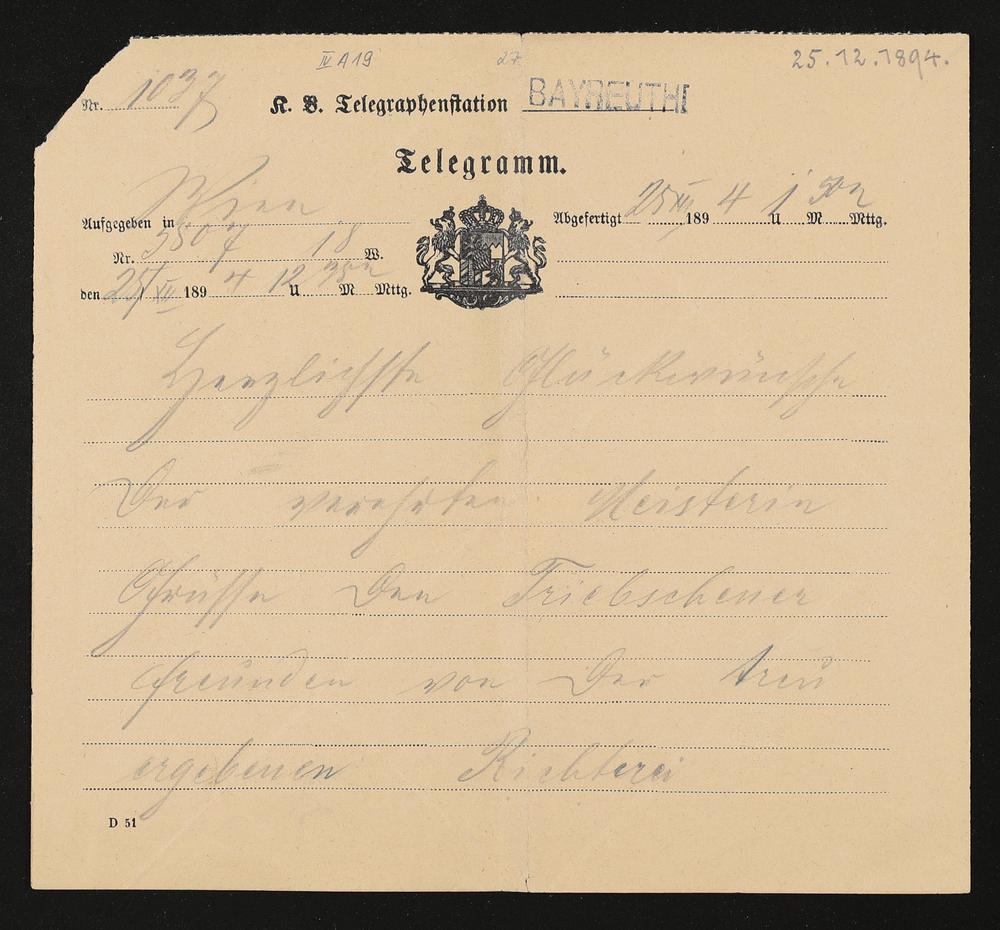 IV A 19 27. 25.12.1894.
Nr. 1037 K. B. Telegraphenstation BAYREUTH
Telegramm.
Aufgegeben in Wien
Abgefertigt 25/XII 1894 1 U 50 M Mttg.
Nr. 5507 18 W.
den 25/XII 1894 12 U M Mttg.
Herzlichste Glückwünsche
Der verehrten Meisterin
Grüsse Den Triebschener
freunden von Der treu
ergebenen Richterei
D 51